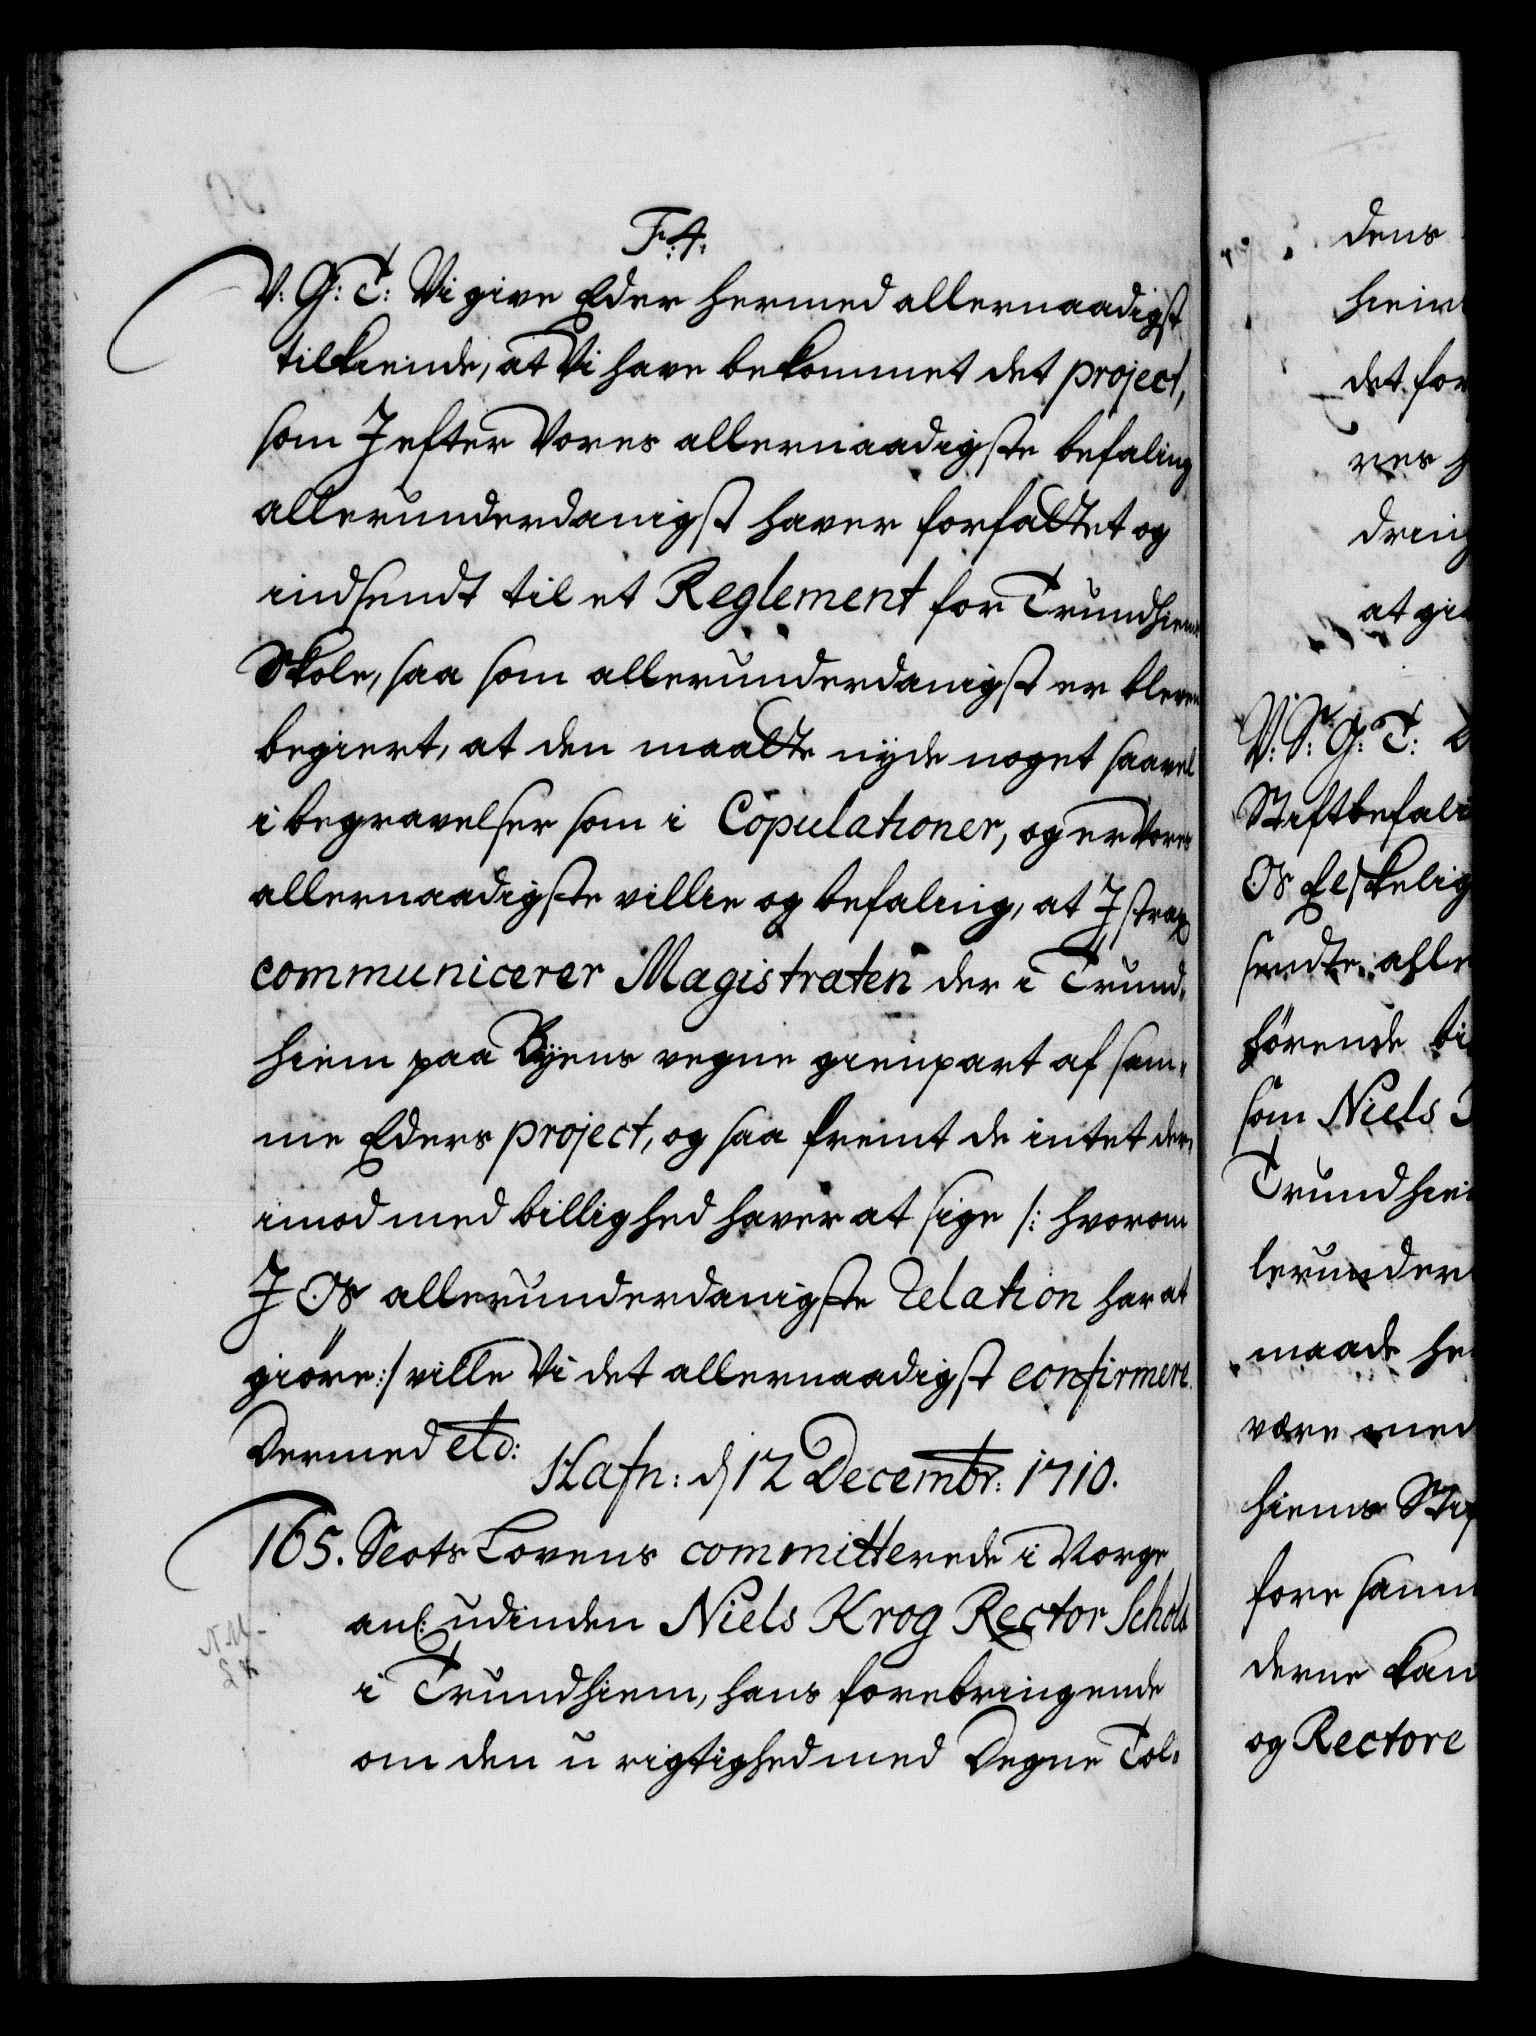 F: 4:
V: G: T: Vi give Eder hermed allernaadigst
tilkiende, at Vi have bekommet det project,
som J efter Vores allernaadigste befaling
allerunderdanigst haver forfattet og
indsendt til et Reglement for Trundhiems
Skole, saa som allerunderdanigst er bleven
begiert, at den maatte nyde noget saavel
i begravelser som i Copulationer, og er Vores
allernaadigste villie og befaling, at J strax
communicerer Magistraten der i Trund,
hiem paa Byens vegne gienpart af sam,
me Eders project, og saa fremt de intet der,
imod med billighed haver at sige /: hvorom
J Os allerunderdanigste Relation har at
giöre :/ ville Vi det allernaadigst confirmere.
Dermed etc:
Hafn: d 12 Decembr: 1710.
165. Slots Lovens committerede i Norge
anl: udinden Niels Krog Rector Schole
i Trundhiem, hans forebringende
om den u rigtighed med Degne Tol,
dens
det for
at gi
V: S: G: T:
Stiftbefali
Os Elskelig
sendte alle
hörende
som Niels
Trundhie
lerunder
maade he
være med
hiems Stif
fore sam
derne kan
og Rectore